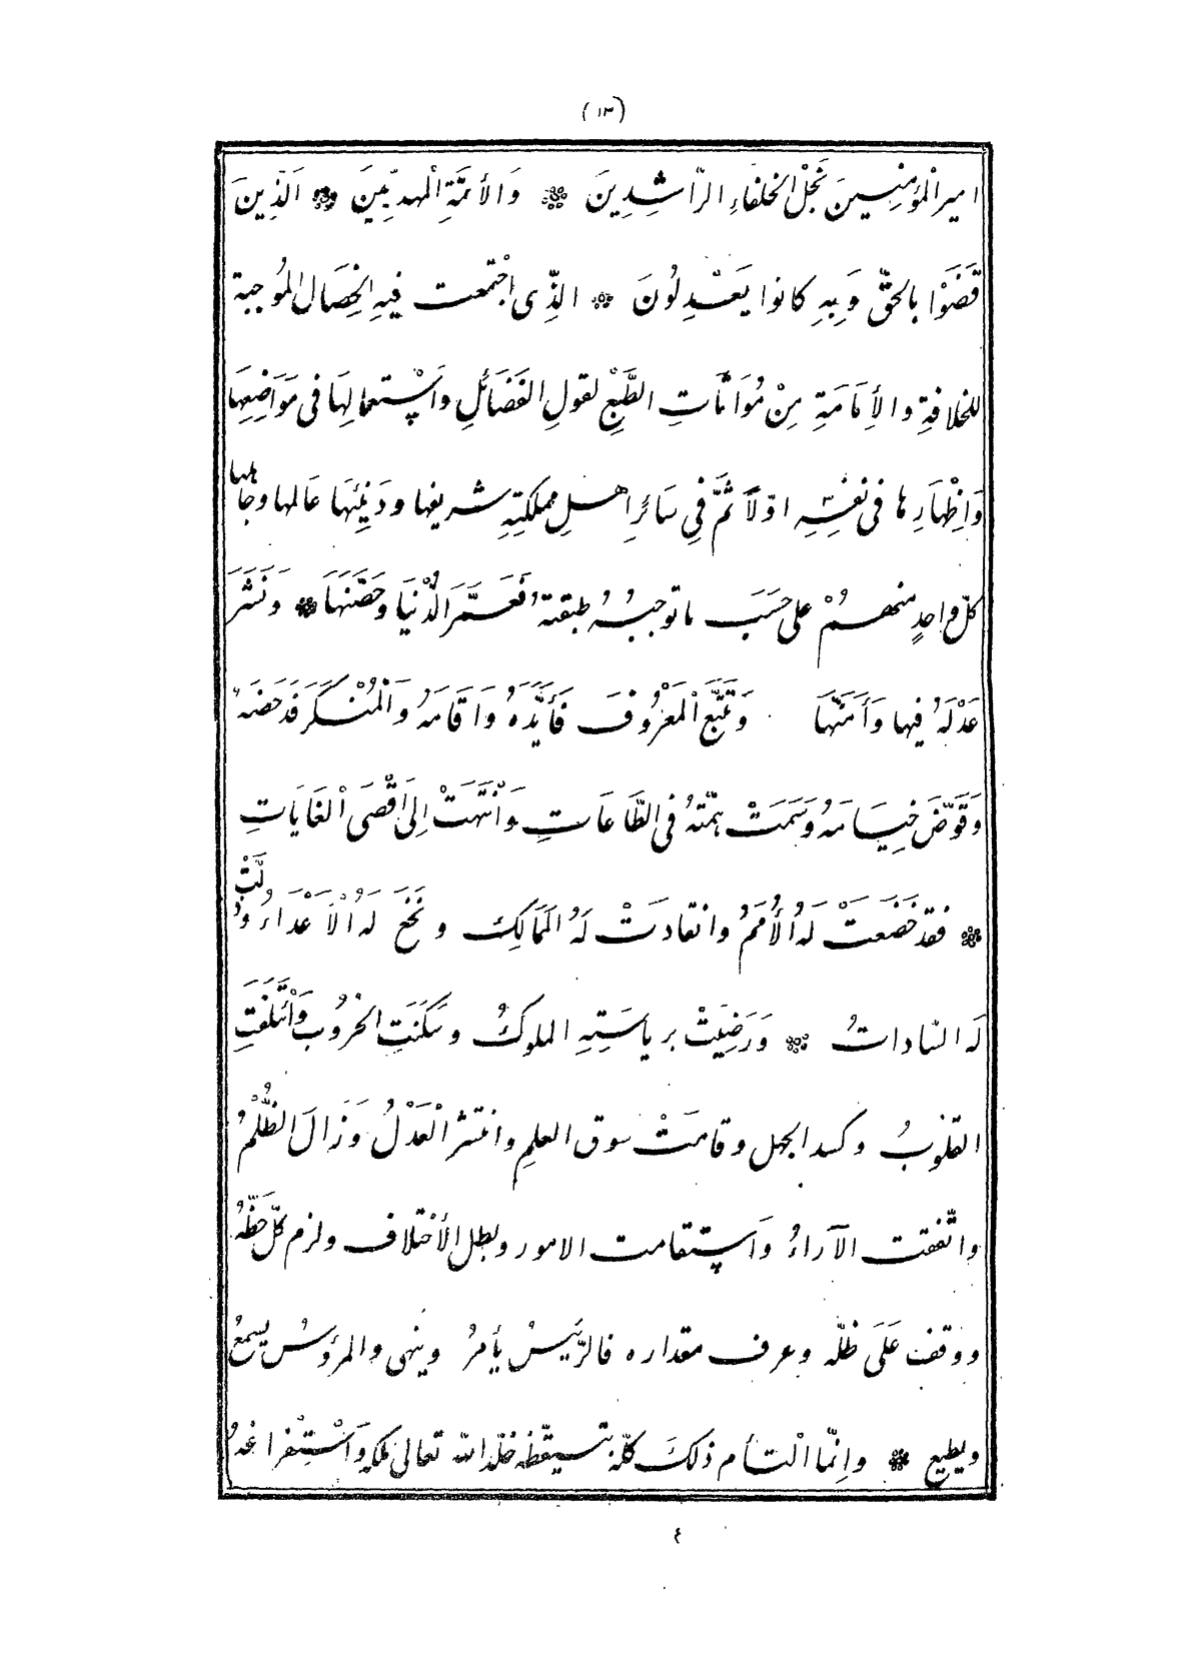 (١٣)
امير الْمؤمنِينَ نَجْلِ الخلفاءِ الرّاشِدِينَ ❊ وَالأئمَّةِ الْمهدیّينَ ❊ اَلَّذِينَ
قَضَوْا بالحقّ وَبِهِ كانوا يَعْدِلُونَ ❊ الَّذِى اجْتمعت فيهِ الخِصَال المُوجبة
للخلافةِ والأِمَامَةِ مِنْ مُوَاتَاتِ الطَّبْعِ لقولِ الفَضَائلِ وَاسْتعمالِهَا فى مَوَاضِعِهَا
وَاِظْهَارِها فى نفسِهِ اوّلاً ثمَّ فِى سَائرِ اهلِ مملكتِهِ شريفها ودَنِيئِهَا عَالمها وجاهلها
كلّ واحدٍ منهمُ على حَسَبَ ماتوجبُهُ طبقتهُ فَعَمَّرَ الدُّنْيَا وحَصَّنَهَا ❊ وَنَشَرَ
عَدْلَهُ فيها وَأَمَنَهَا وَتَتَبَّعَ الْمَعْرُوفَ فَأَيَّدَهُ وَاَقَامَهُ وَالْمُنْكَرَ فَدَحَضَهُ
وَقَوَّضَ خِيَامَهُ وَسَمَتْ هِمّتهُ فى الطَّاعَاتِ وَانْتَهَتْ اِلىَ اَقْصَى الْغَايَاتِ
❊ فقد خَضَعَتْ لَهُ الأُمَمُ وانقادَتْ لَهُ المَمَالكُ ونَخَعَ لَهُ الأَعْدَاءُ وذَلَّتْ
لَه السّاداتُ ❊ وَرَضِيَتْ برياسَتِهِ الملوكُ وسَكَنَتِ الحُرُوبُ وَائْتَلَفَتِ
القلوبُ وكسد الجهل وقامَتْ سوق العلمِ وانتشر الْعَدْلُ وَزَالَ الظُّلْمُ
واتَّفقت الآراءُ وَاستقامت الامور وبطل الأختلاف ولزم كلّ حَظَّهُ
ووقف عَلَى ظلّه وعرف مقداره فالرّئيسُ يأمرُ وينهى والمرؤسُ يسمعُ
ويطيع ❊ واِنّما الْتأم ذلكَ كلّه بتيقّظه خلّد الله تعالى ملكه وَاسْتِفْراغهُ
٤